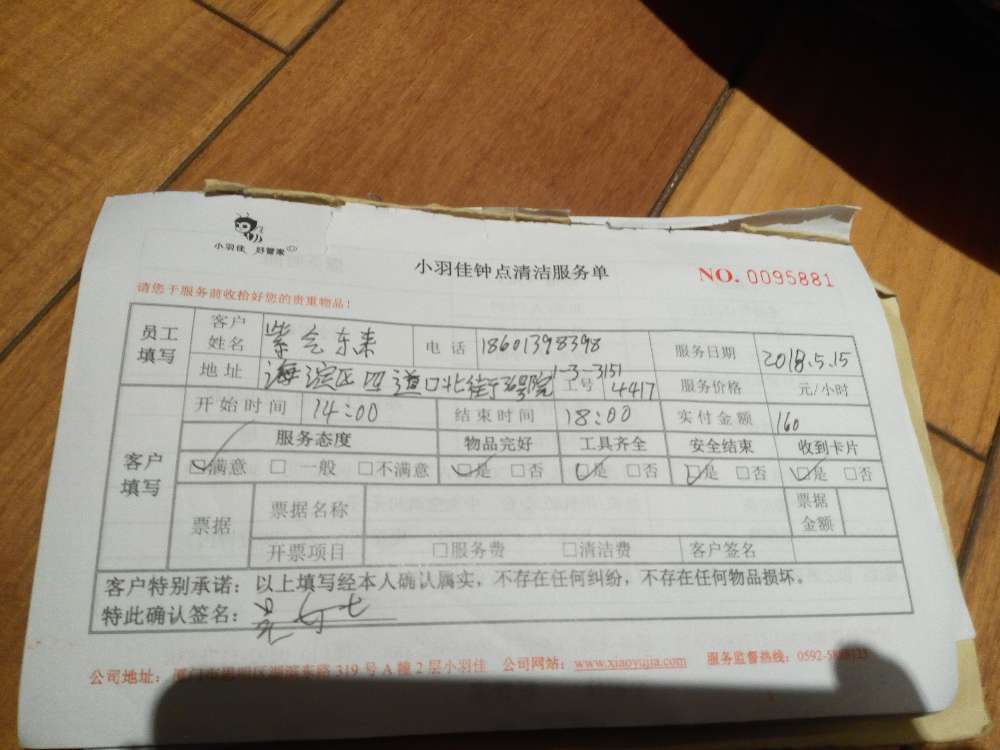 小羽佳 好管家
小羽佳钟点清洁服务单
NO. 0095881
请您于服务前收拾好您的贵重物品!
员工填写 客户姓名 紫气东来 电话 18601398398 服务日期 2018.5.15
地址 海淀区四道口北街36号院1-3-3151 工号 4417 服务价格 元/小时
客户填写 开始时间 14:00 结束时间 18:00 实付金额 160
服务态度 物品完好 工具齐全 安全结束 收到卡片
☑满意 □ 一般 □不满意 ☑是 □否 ☑是 □否 ☑是 □否 ☑是 □否
票据 票据名称 票据金额
开票项目 □服务费 □清洁费 客户签名
客户特别承诺:以上填写经本人确认属实,不存在任何纠纷,不存在任何物品损坏。
特此确认签名:
公司地址:厦门市思明区湖滨东路 319 号 A 幢 2 层小羽佳 公司网站:www.xiaoyujia.com 服务监督热线:0592-